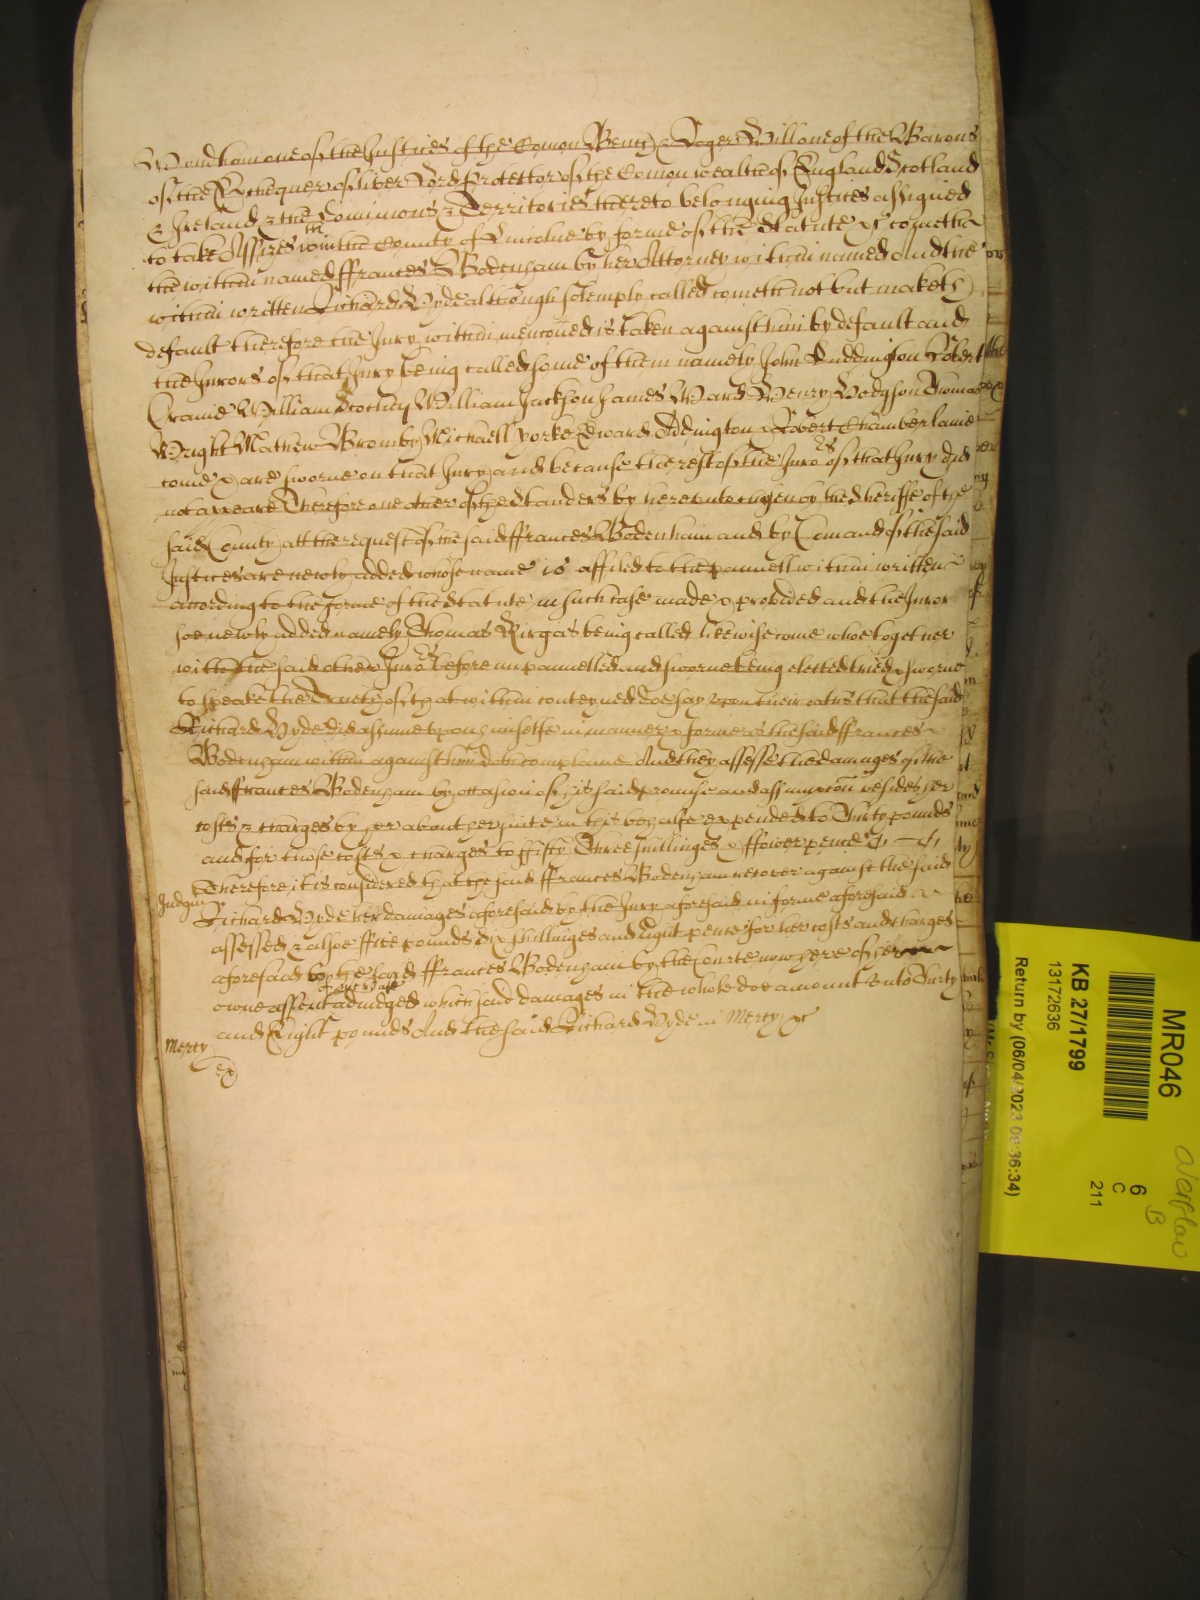 Wyndham one of the Justices of the Comon Bench & Roger Hill one of the Barons
of the Exchequer of Oliver Lord Protector of the Comon wealth of England Scotland
& Ireland & the Dominions & Territories thereto belonging Justices assigned
to take Assizes wthin the County of Lincolne by forme of the Statute &c cometh
the within named ffrances Bodenham by her Attorney within named And the
within written Richard Hyde although solemply called cometh not but maketh
default therefore the Jury within menconed is taken against him by default and
the Jurors of that Jury being called some of them namely John Luddington Robert
William Stochey William Jackson James Ward Henry Hodgson Thomas
Wright Mathew Bromby Michaell Yorke Edward Addington & Robert Chamberlaine
come & are sworne on that Jury and because the rest of the Juro rs of that Jury did
not appeare Therefore one other of the Standers by hereunto by the Sheriffe of the
said County att the request of the said ffrances Bodenham and by Comand of the said
Justices are newly added whose name is affiled to the pannell within written
according to the forme of the Statute in such case made & provided and the Juror
soe newly added namely Thomas being called likewise come whoe together
with the said other Juro rs before impannelled and sworne being elected tried & sworne
to speake the Trueth of that within conteyned doe say upon their oaths that the said
Richard Hyde did assume upon himselfe in manner & forme as the said ffrances
Bodenham within against him doth complaine And they assesse the damages of the
said ffrances Bodenham by occasion of his said promise and assumpcon besides her
costs & charges by her about her suite in this behalfe expended to Thirty pounds
and for those costs & charges to ffifty Three shillinges & ffower pence
Therefore it is considered that the said ffrances Bodenham recover against the said
Judgmt Richard Hyde her damages aforesaid by the Jury aforesaid in forme aforesaid
assessed & alsoe ffive pounds six shillinges and eight pence for her costs and charges
aforesaid to the said ffrances Bodenham by the Courte now here of her
of increase
owne assent adiudged which said damages in the whole doe amount unto Thirty
and Eight pounds And the said Richard Hyde in Mercy &c
Mercy
MR046
KB 27/1799
13172636
Return by (06/04/2023 09:36:34)
6
C
211
overflow
B